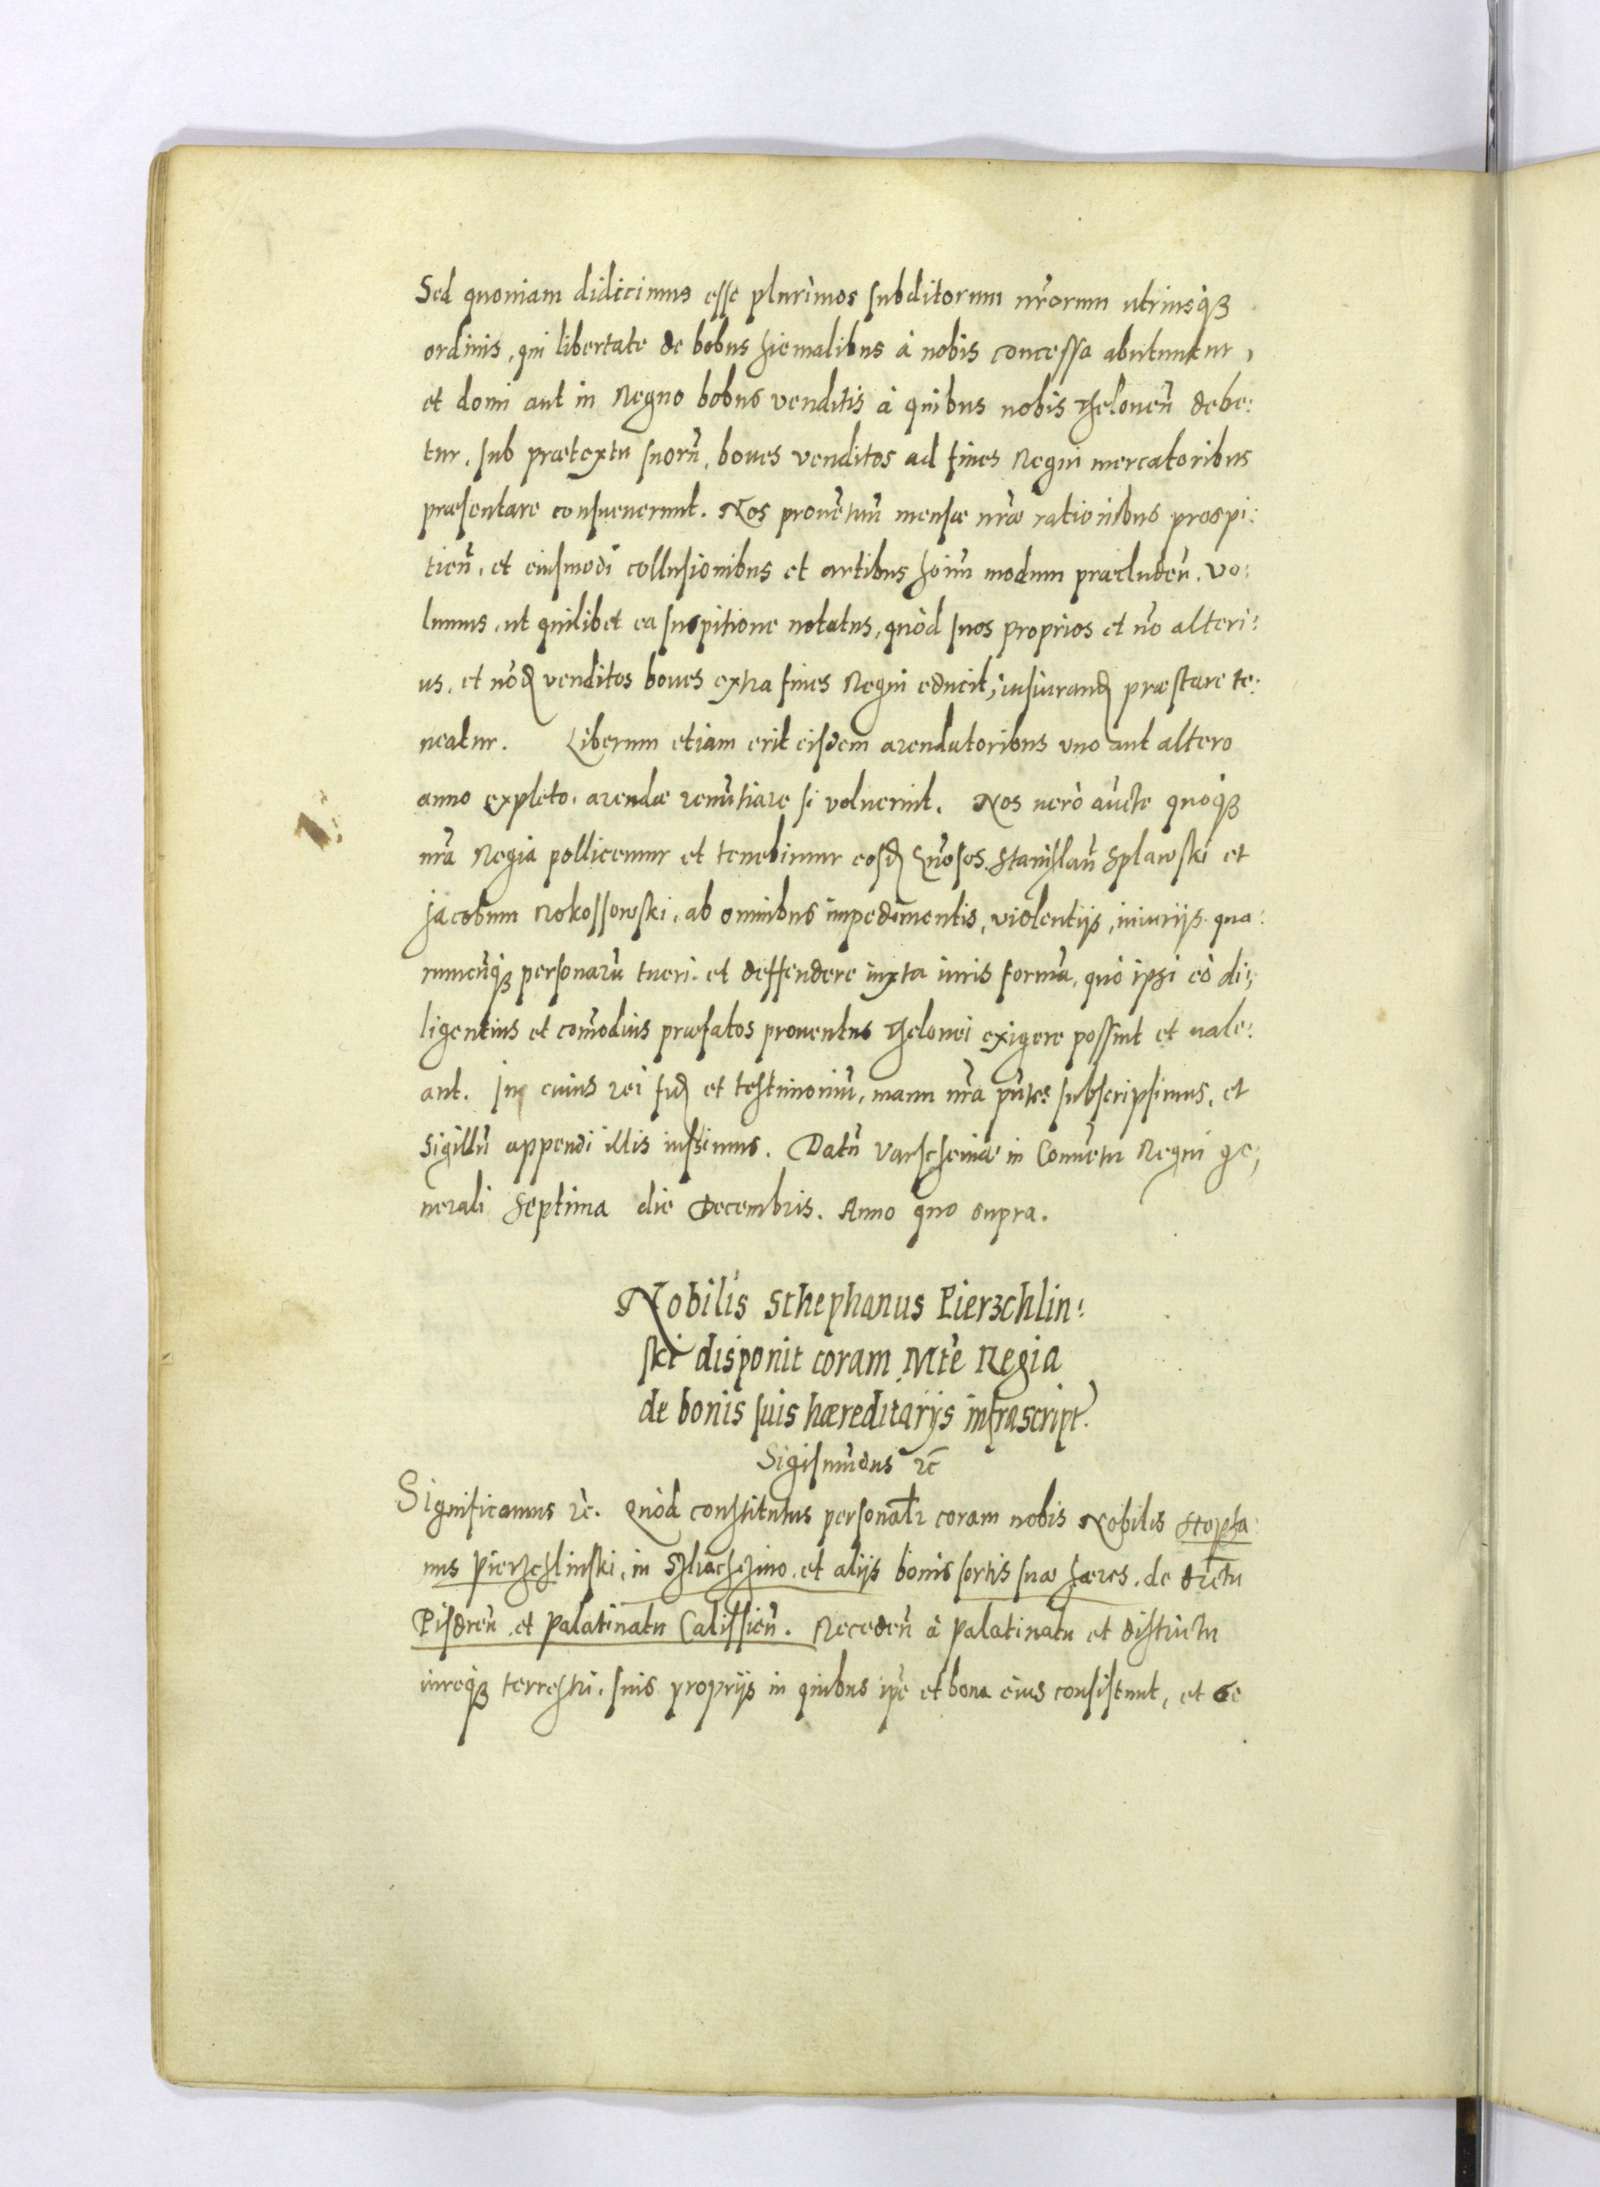 Sed quoniam didicimus esse plurimos subditorum nr̃orum utriusq̃
ordinis, qui libertate de bobus hiemalibus à nobis concessa abutuntur,
et domi aut in Regno bobus venditis à quibus nobis theloneũ debe:
tur, sub prætextu suorũ, boues venditos ad fines Regni mercatoribus
præsentare consueuerunt. Nos prouẽtuũ mensæ nr̃æ rationibus prospi:
cieñ, et eiusmodi collusionibus et artibus hoĩm modum præcludeñ, Vo:
lumus, ut quilibet ea suspitione notatus, quòd suos proprios et nõ alteri:
us, et nõd venditos boues extra fines Regni educit, iusiurand præstare te:
neatur. Liberum etiam erit eisdem arendatoribus uno aut altero
anno expleto, arendæ renũtiare si voluerint. Nos uerò aucte quoq̃
nr̃a Regia pollicemur et tenebimur eosd Gñosos Stanislaũ Splawski et
Jacobum Rokossowski, ab omnibus impedimentis, violentijs, iniurijs qua:
rumcũq̃ personarũ tueri et deffendere iuxta iuris formã, quò ipsi eò di:
ligentius et com̃odius præfatos prouentus thelonei exigere possint et uale:
ant. In cuius rei fid et testimoniũ, manu nr̃a pñtes subscripsimus, et
sigillũ appendi illis iussimus. Datũ Varscheuiæ in Conuẽtu Regni ge:
nerali Septima die Decembris. Anno quo supra.
Nobilis Sthephanus Pierzchlin:
ski disponit coram Mte Regia
de bonis suis hæreditarijs infrascript.
Sigismũdus ꝛc̃
Significamus ꝛc̃. Quòd constitutus personalr coram nobis Nobilis Stepha
nus Pierzchlinski, in Szlachczino, et alijs bonis sortis suæ hæres, de dr̃ctu
Pisdreñ, et Palatinatu Calissieñ. Recedeñ à Palatinatu et districtu
iureq̃ terrestri, suis proprijs in quibus ipẽ et bona eius consistunt, et se